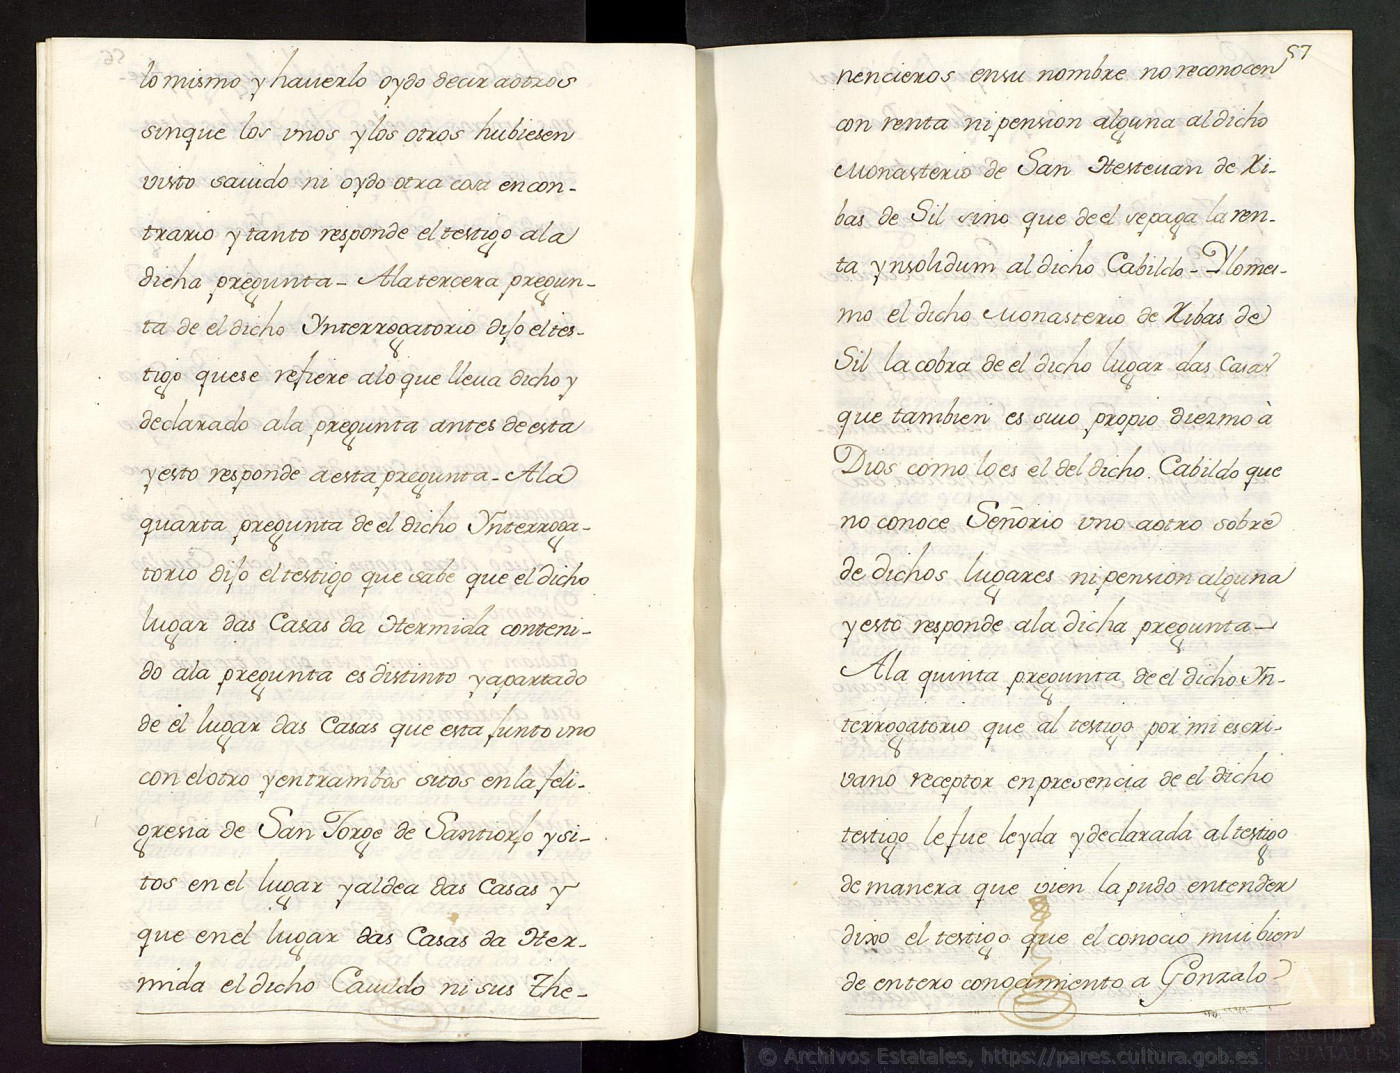 lo mismo y hauerlo oydo decir aotros
sinque los vnos ylos otros hubiesen
visto sauido ni oydo otra cosa encon-
trario ytanto responde eltestigo ala
dicha pregunta- Alatercera pregun-
ta de eldicho Ynterrogatorio dijo eltes-
tigo quese refiere aloque lleua dicho y
declarado ala pregunta antes deesta
yesto responde aesta pregunta- Ala
quarta pregunta deel dicho Ynterroga-
torio dijo eltestigo que sabe que el dicho
lugar das Casas da Hermida conteni-
do ala pregunta esdistinto yapartado
de el lugar das Casas que esta junto vno
con elotro yentrambos sitos enla feli-
gresia de San Jorge de Santiorjo ysi-
tos enel lugar yaldea das Casas y
que enel lugar das Casas da Her-
mida eldicho Cauildo ni sus The-
57
nencieros ensu nombre no reconocen
con renta nipension alguna aldicho
Monasterio de San Hesteuan de Ri-
bas de Sil sino que deel sepaga laren-
ta ynsolidum al dicho Cabildo- Ylomes-
mo el dicho Monasterio de Ribas de
Sil lacobra de el dicho lugar das Casas
que tambien es suio propio diezmo à
Dios como loes el del dicho Cabildo que
no conoce Señorio vno aotro sobre
de dichos lugares nipension alguna
yesto responde ala dicha pregunta-
Ala quinta pregunta de el dicho Yn-
terrogatorio que al testigo por mi escri-
vano receptor enpresencia de el dicho
testigo le fue leyda ydeclarada altestigo
de manera que vien lapudo entender
dixo el testigo que el conocio mui bien
de entero conocimiento a Gonzalo
© Archivos Estatales, https://pares.cultura.gob.es